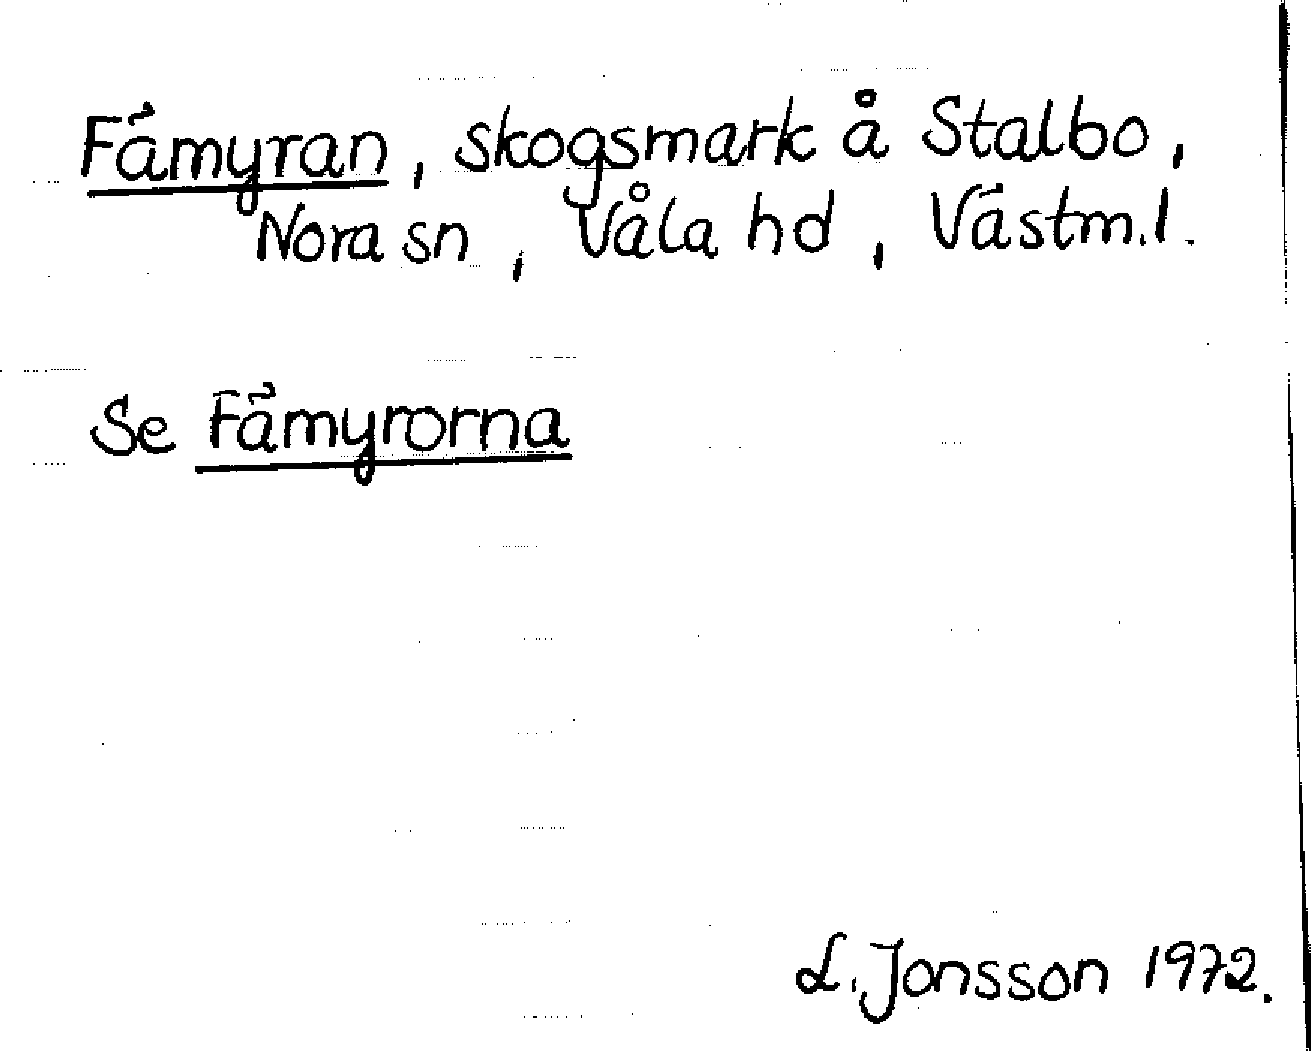 Fämyran, skogsmark å Stalbo,
Nora sn, Våla hd, Västm.l.
Se Fämyrorna
L. Jonsson 1972.